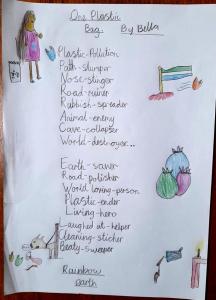 One Plastic
Bag. By Bella
Plastic-Pollution
Path-stumper
Nose-stinger
Road-ruiner
Rubbish-spreader
Animal-enemy
Cave-collapser
World-destroyer...
Earth-saver
Road-polisher
World loving-person
Plastic-ender
Living-hero
Laughed at-helper
Cleaning-sticher
Beaty-sweaper
Rainbow
earth